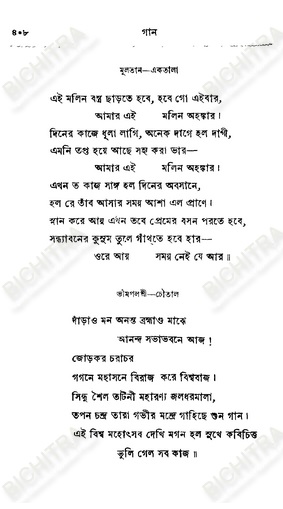 ৪০৮
গান
মূলতান—একতালা
এই মলিন বস্ত্র ছাড়তে হবে, হবে গো এইবার,
আমার এই মলিন অহঙ্কার।
দিনের কাজে ধূলা লাগি, অনেক দাগে হল দাগী,
এমনি তপ্ত হয়ে আছে সহ্য করা ভার—
আমার এই মলিন অহঙ্কার।
এখন ত কাজ সাঙ্গ হল দিনের অবসানে,
হল রে তাঁব আসার সময় আশা এল প্রাণে।
স্নান করে আয় এখন তবে প্রেমের বসন পরতে হবে,
সন্ধ্যাবনের কুসুম তুলে গাঁথ্‌তে হবে হার—
ওরে আয় সময় নেই যে আর॥
ভীমপলশ্রী—চৌতাল
দাঁড়াও মন অনন্ত ব্রহ্মাণ্ড মাঝে
আনন্দ সভাভবনে আজ!
জোড়কর চরাচর
গগনে মহাসনে বিরাজ করে বিশ্ববাজ।
সিন্ধু শৈল তটিনী মহারণ্য জলধরমালা,
তপন চন্দ্র তারা গভীর মন্দ্রে গাহিছে শুন গান।
এই বিশ্ব মহোৎসব দেখি মগন হল সুখে কবিচিত্ত
ভুলি গেল সব কাজ॥
BICHITRA